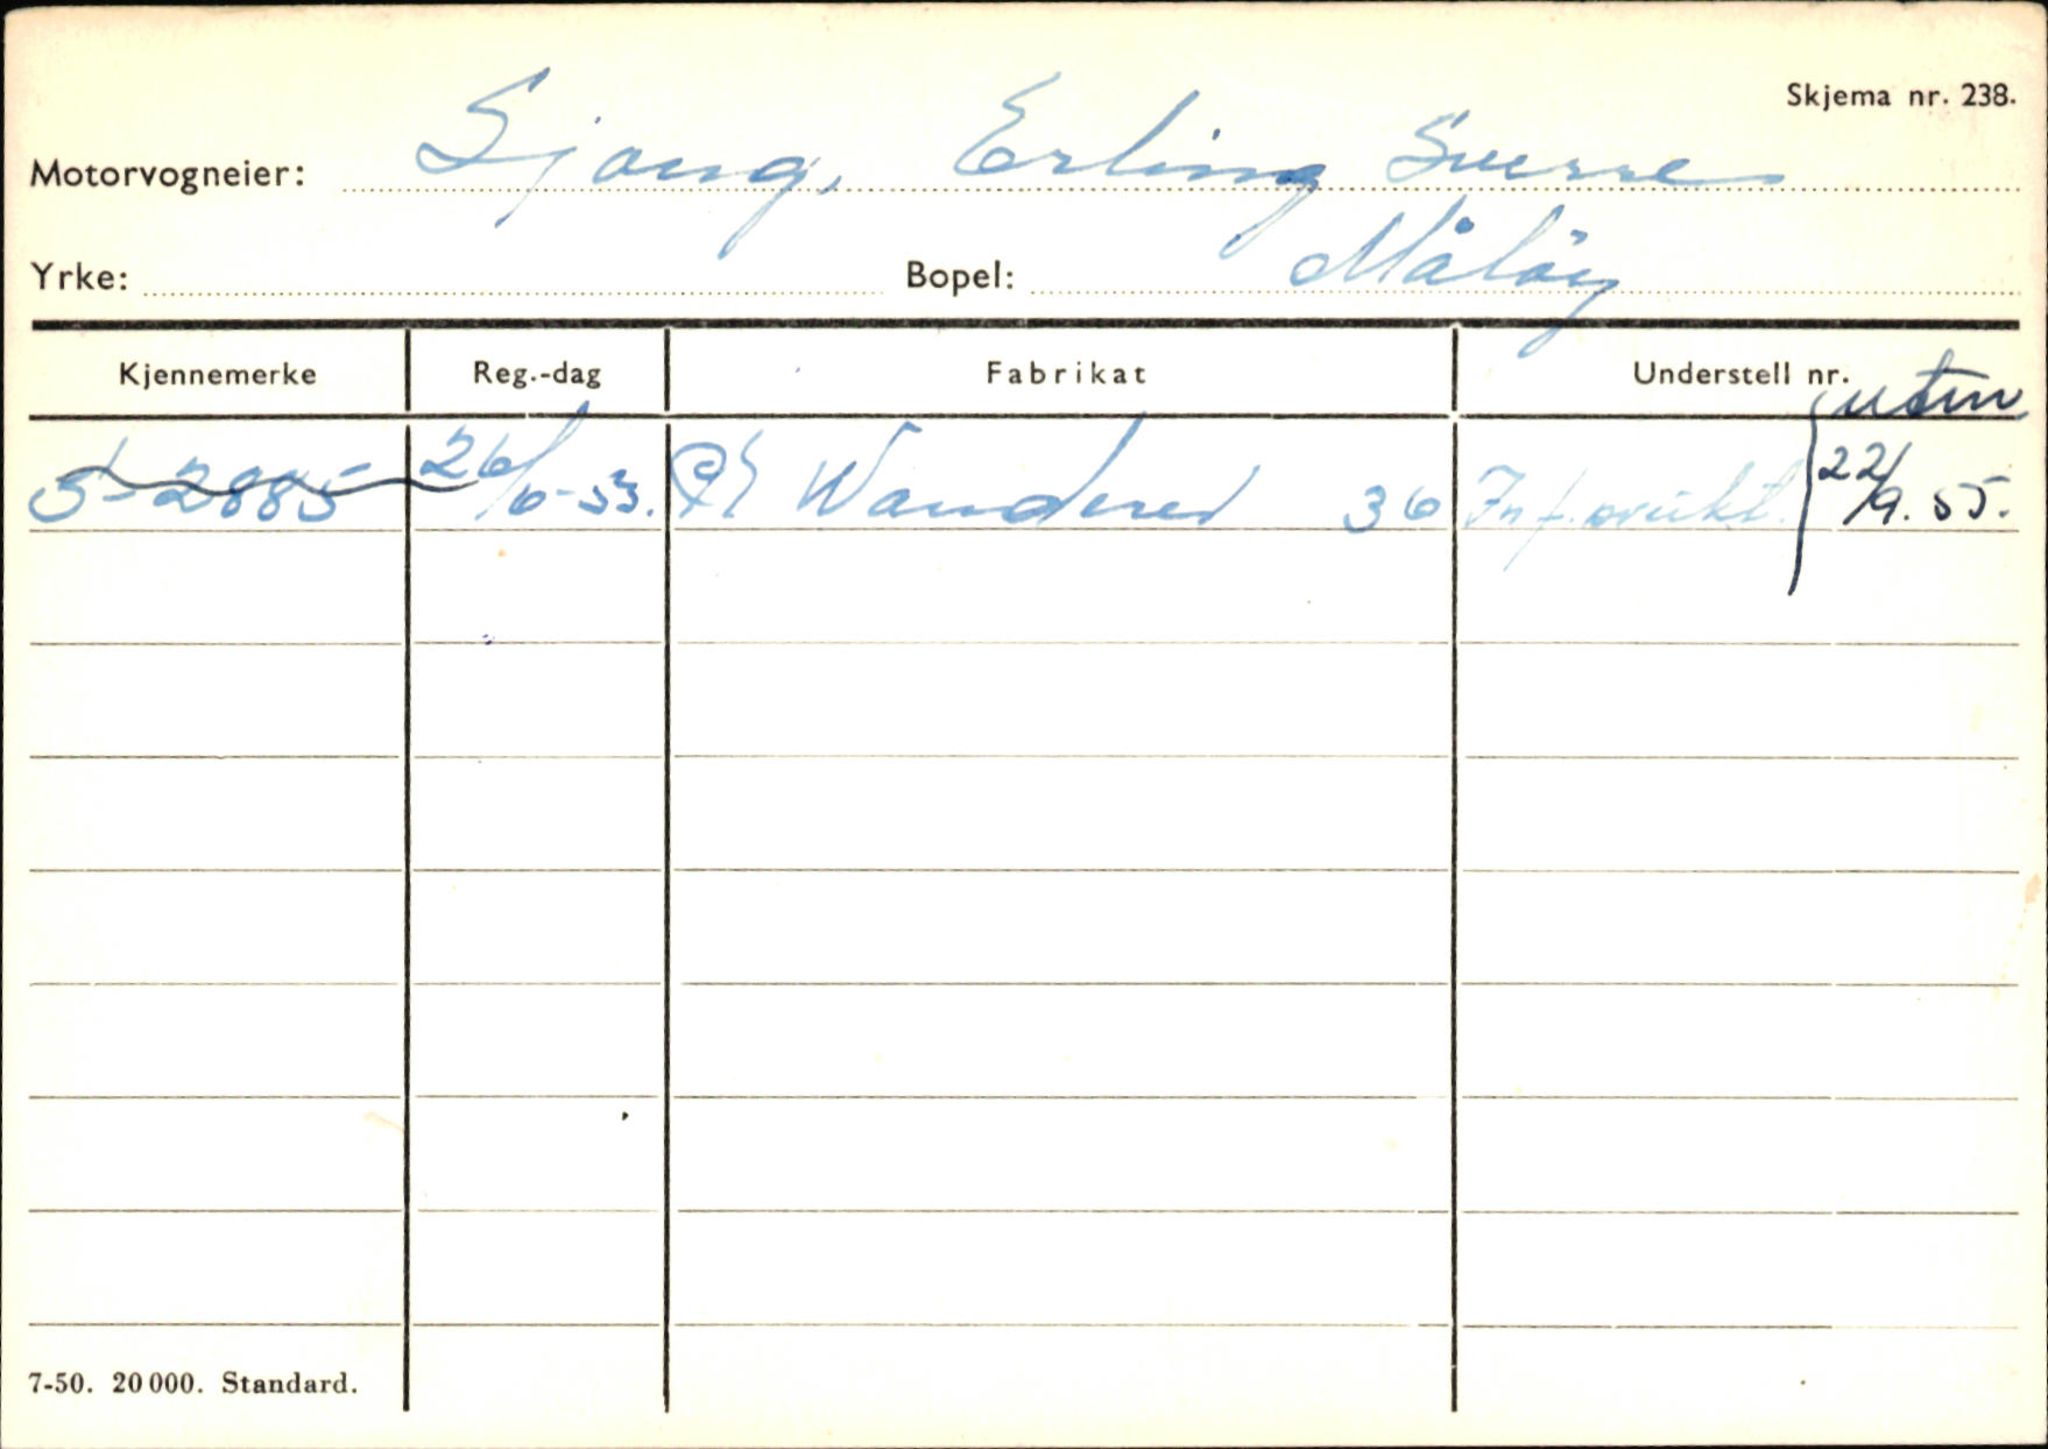 Skjema nr. 238.
Motorvogneier: Sjong, Erling Sverre
Yrke: Bopel: Måløy
Kjennemerke Reg.-dag Fabrikat Understell nr.
utm
S-2885 26/6-53. Wanderer 36 22/9.55.
7-50. 20 000. Standard.